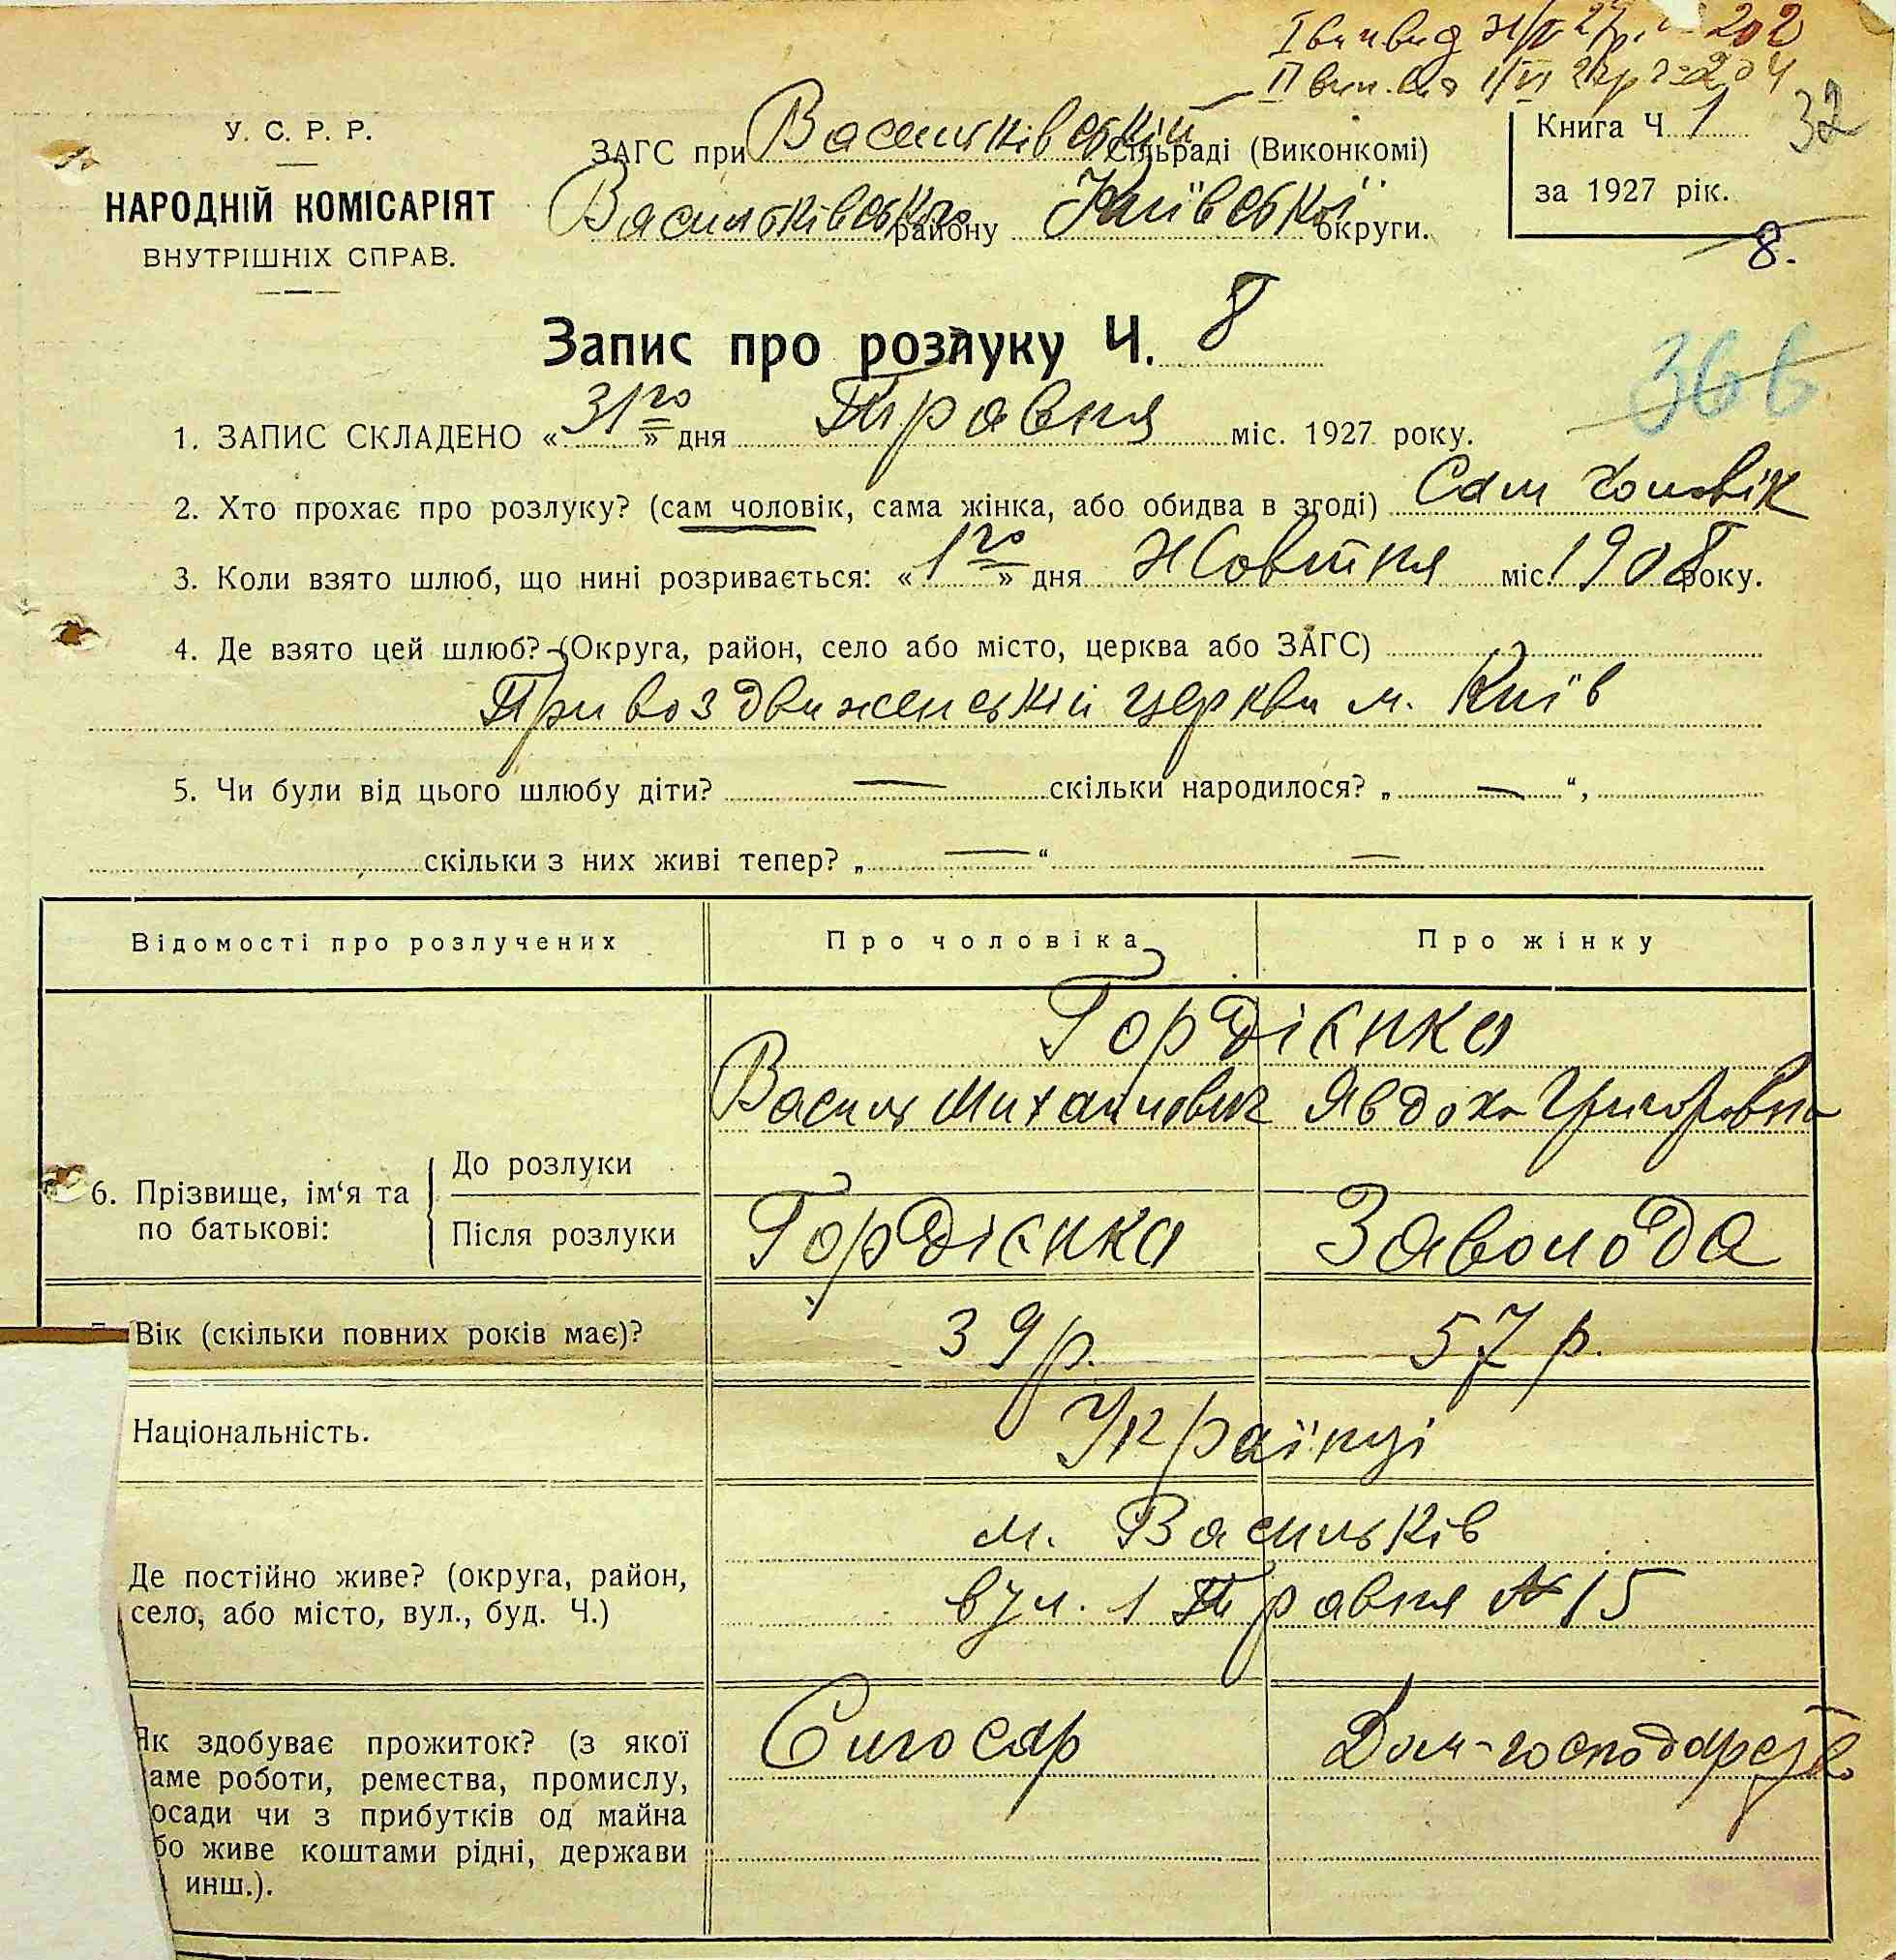 І вип вид 31/V 27р. № 202
ІІ вип. вид 1/VI 27р № 204
32
У. С. Р. Р.
НАРОДНІЙ КОМІСАРІЯТ
ВНУТРІШНІХ СПРАВ.
ЗАГС при Васильківській Сільраді (Виконкомі)
Васильківського району Київської округи.
Книга Ч 1
за 1927 рік.
8.
Запис про розлуку Ч. 8
36
1. ЗАПИС СКЛАДЕНО « 31го » дня Травня міс. 1927 року.
2. Хто прохає про розлуку? (сам чоловік, сама жінка, або обидва в згоді) Сам чоловік
3. Коли взято шлюб, що нині розривається: « 1го » дня Жовтня міс. 1908 року.
4. Де взято цей шлюб? (Округа, район, село або місто, церква або ЗАГС)
Привоздвиженській церкви м. Київ
5. Чи були від цього шлюбу діти? — скільки народилося? „ — “,
скільки з них живі тепер? „ — “ —
Відомості про розлучених Про чоловіка Про жінку
Гордієнко
Василь Михайлович Явдоха Григоровна
6. Прізвище, ім‘я та по батькові:
До розлуки
Після розлуки Гордієнко Заволода
Вік (скільки повних років має)? 39 р. 57 р.
Національність. Українці
Де постійно живе? (округа, район,
село, або місто, вул., буд. Ч.)
м. Васильків
вул. 1 Травня № 15
Як здобуває прожиток? (з якої
аме роботи, ремества, промислу,
осади чи з прибутків од майна
бо живе коштами рідні, держави
инш.).
Слюсар Дом-господарство